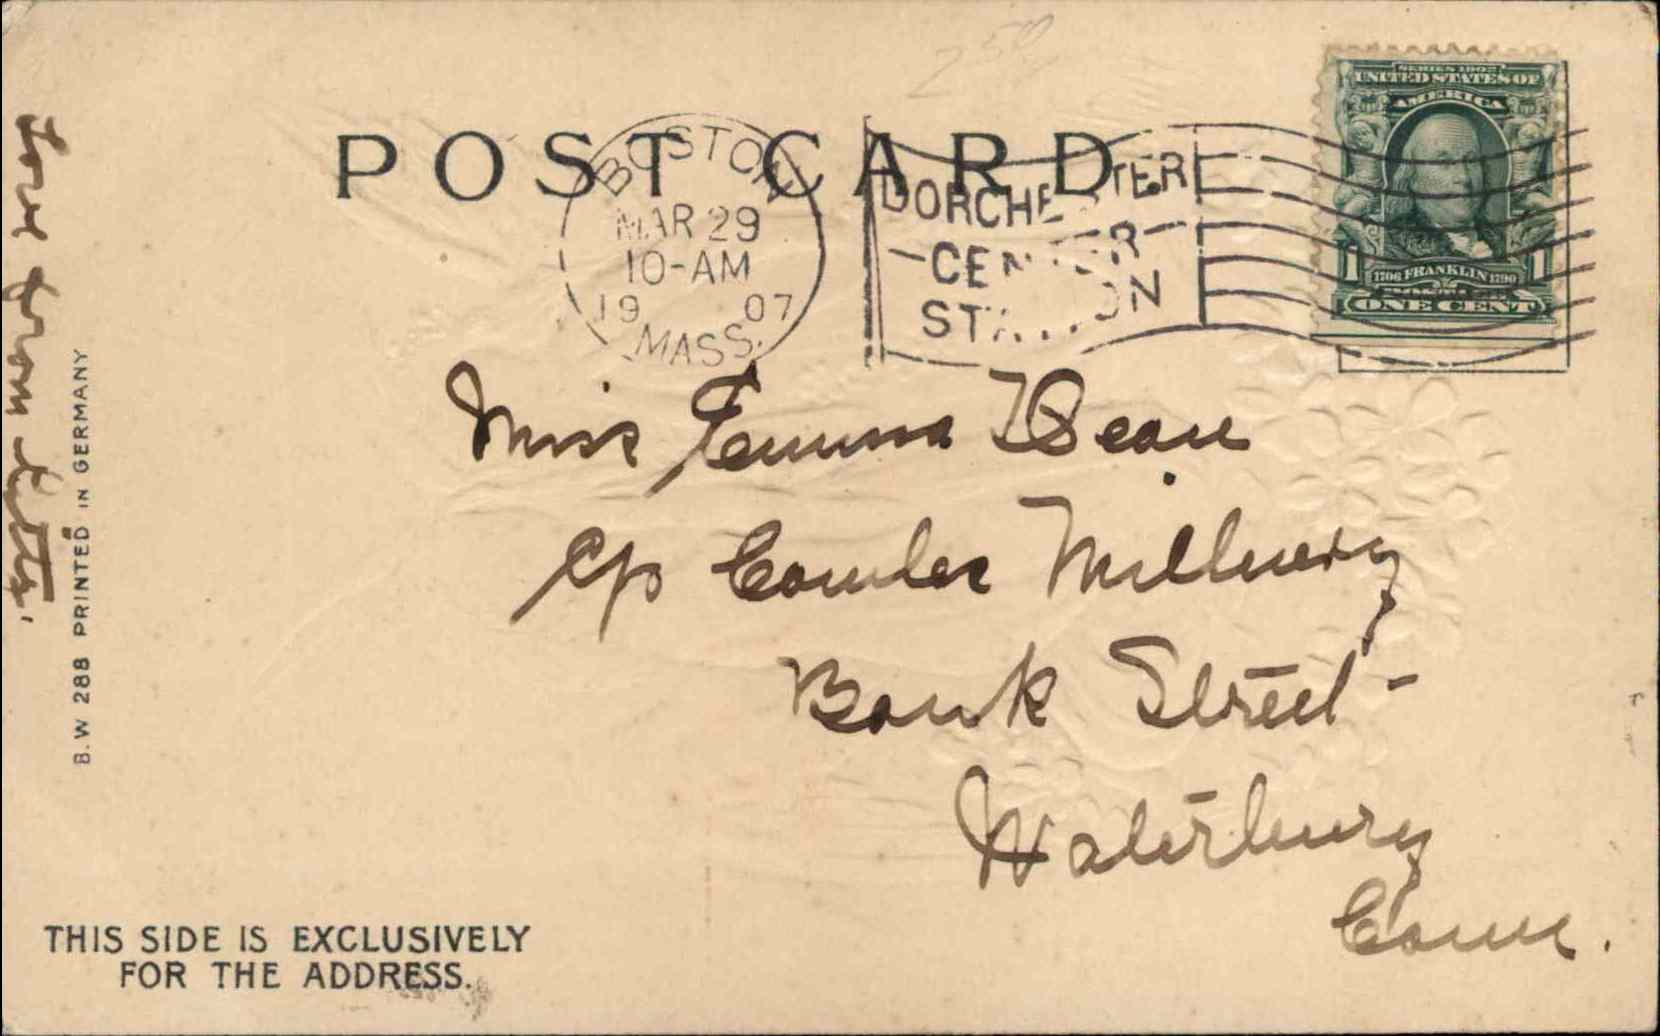 250
POST CARD
BOSTON
MAR 29
10-AM
19 07
MASS.
DORCHESTER
CENTER
STATION
SERIES 1902
UNITED STATES OF
AMERICA
1 1706 FRANKLIN 1790 1
ONE CENT
Miss Emma Bean
c/o Cowles Millinery
Bank Street -
Waterbury
Conn.
Love from
B.W 288 PRINTED IN GERMANY
THIS SIDE IS EXCLUSIVELY
FOR THE ADDRESS.